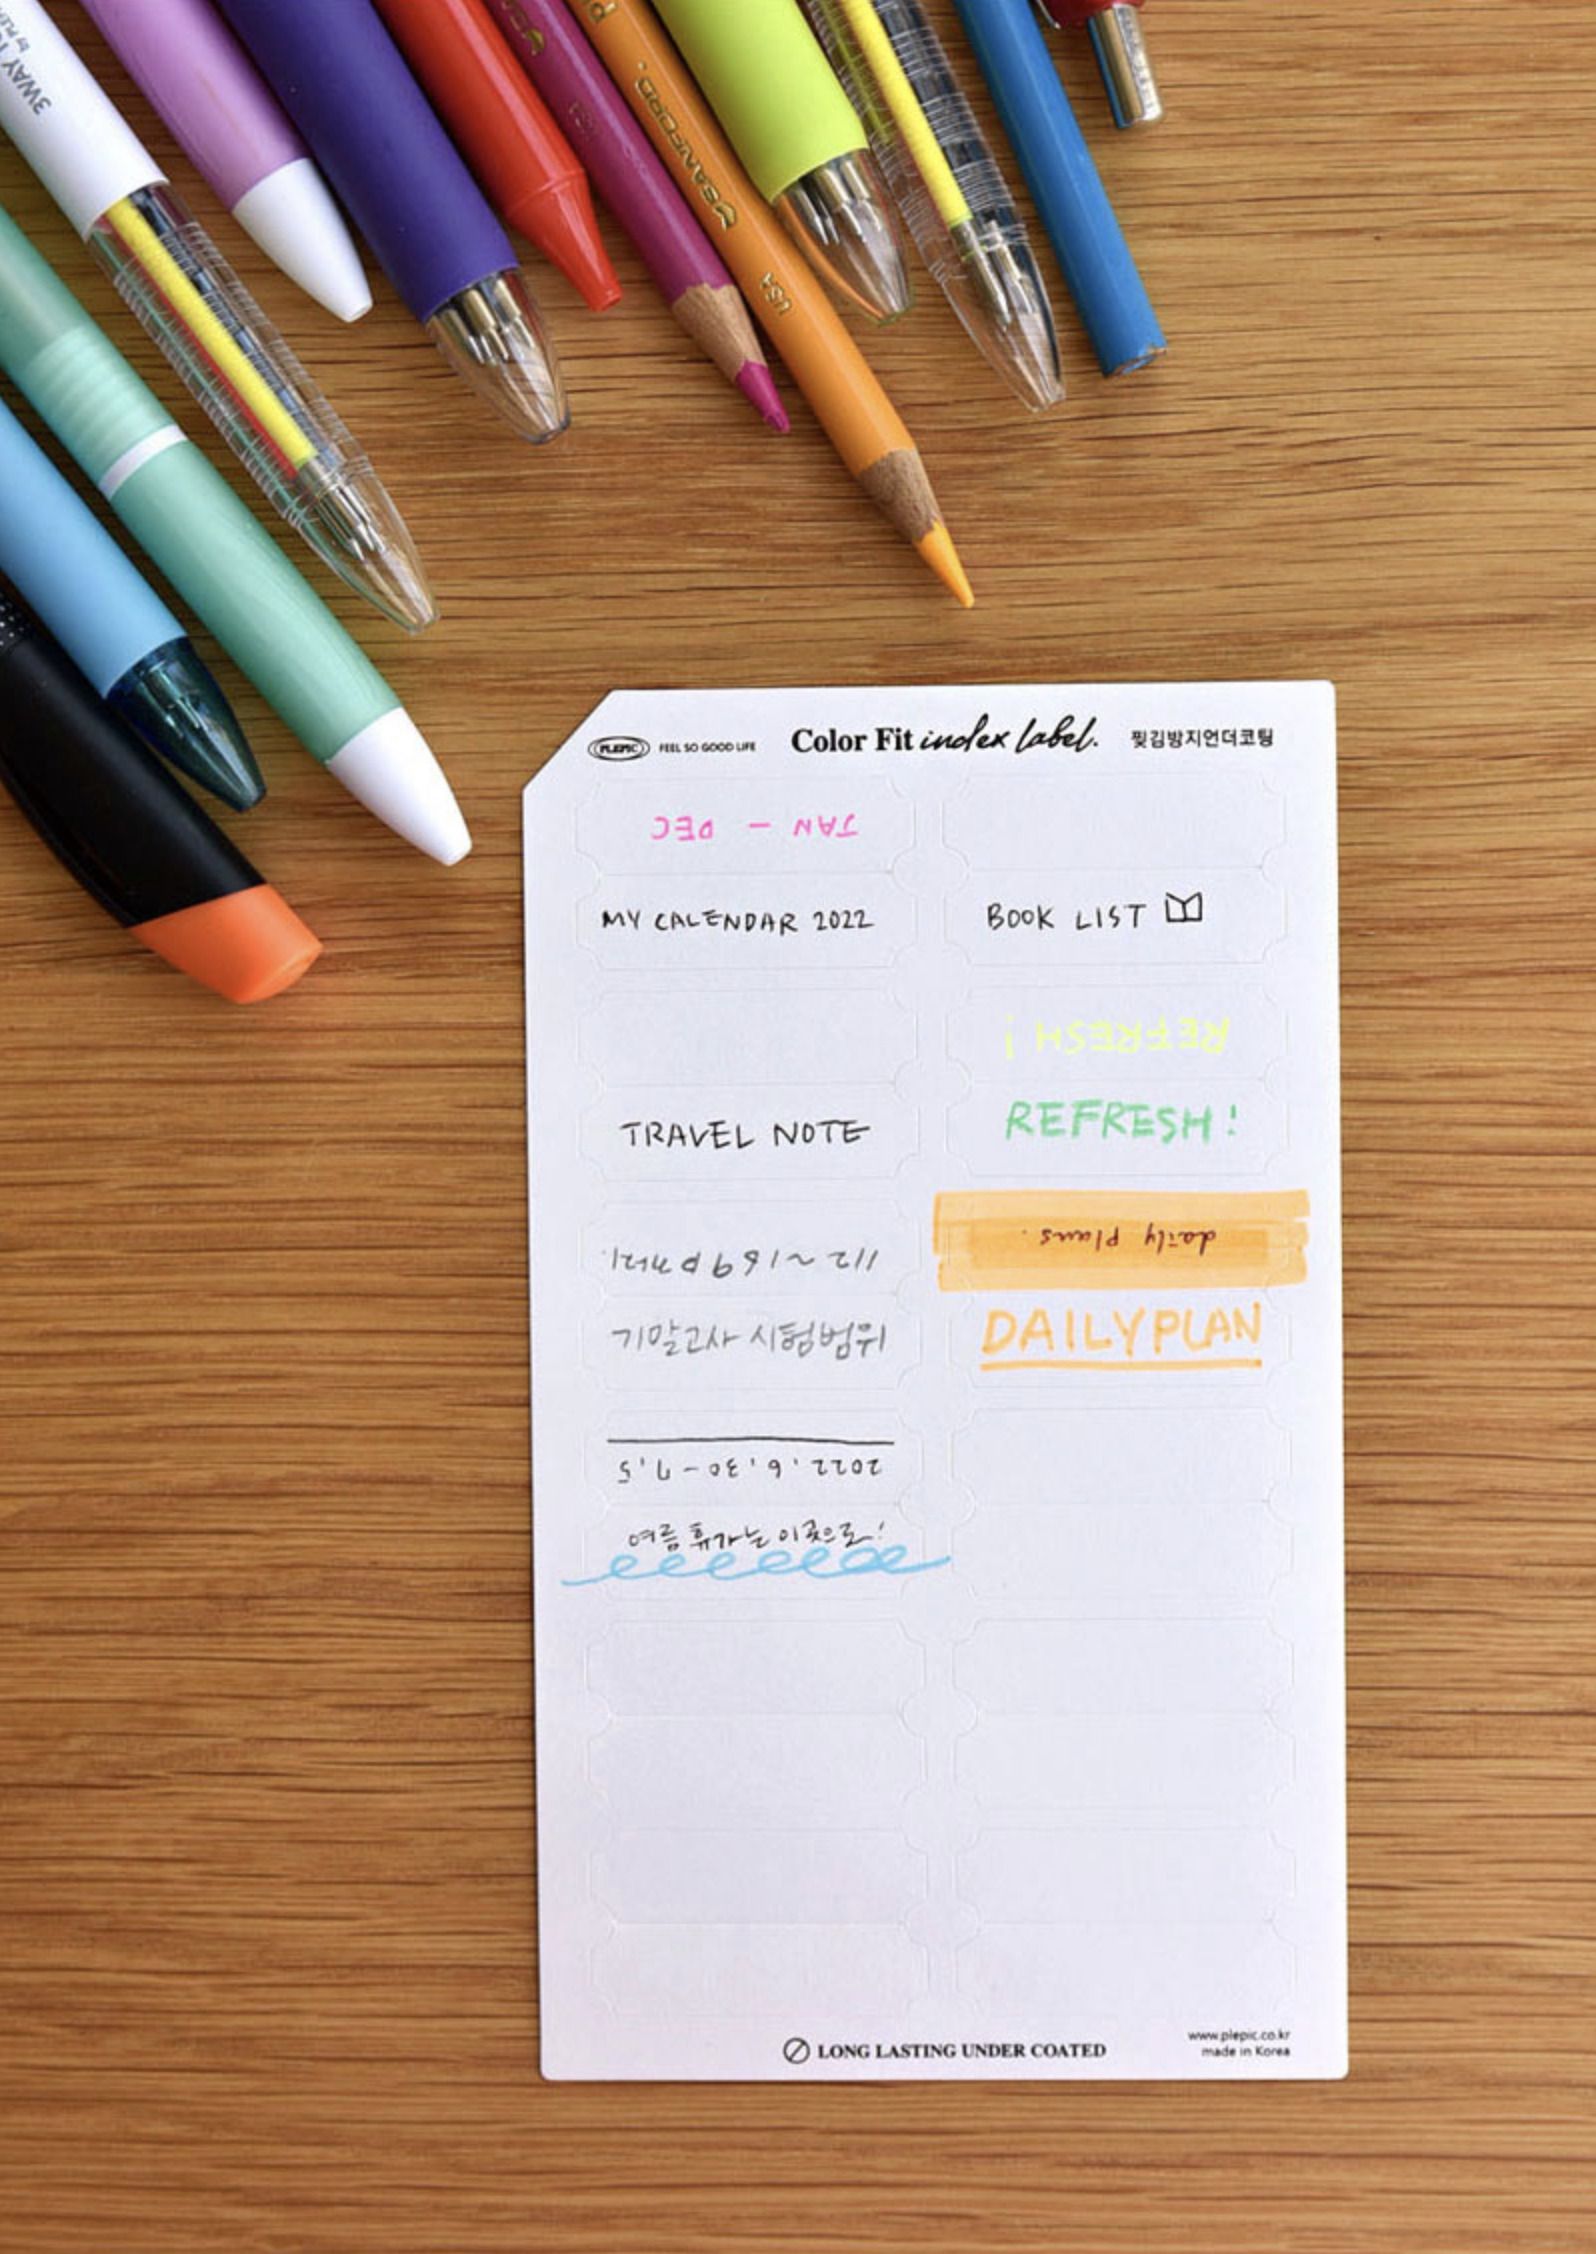 3WAY
SANFORD.
USA
USA
PLEPIC FEEL SO GOOD LIFE Color Fit index label. 찢김방지언더코팅
JAN - DEC
MY CALENDAR 2022
BOOK LIST
REFRESH!
TRAVEL NOTE
REFRESH!
daily plans.
기말고사 시험범위
DAILY PLAN
2022. 6. 30 - 7. 5
여름 휴가는 이곳으로!
LONG LASTING UNDER COATED
www.plepic.co.kr
made in Korea